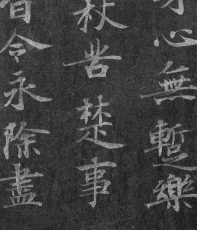 心無暫樂
杖苦楚事
皆令永除盡